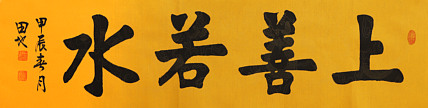 上善若水
甲辰春月
田地